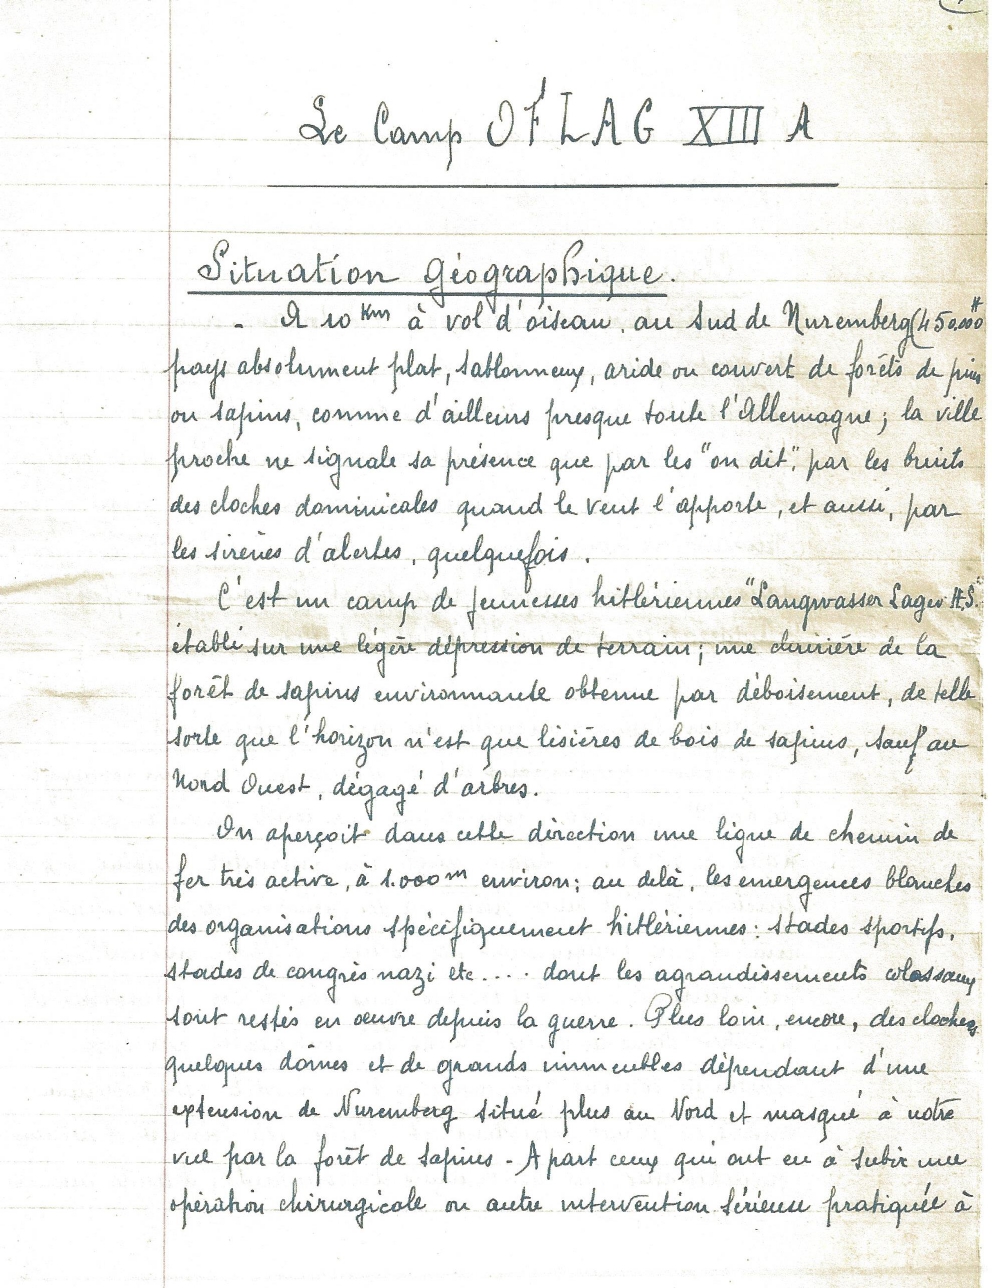 Le Camp OFLAG XIII A
Situation Géographique.
- A 10 Km à vol d'oiseau, au Sud de Nuremberg (450.000 H
pays absolument plat, sablonneux, aride ou couvert de forêts de pins
ou sapins, comme d'ailleurs presque toute l'Allemagne ; la ville
proche ne signale sa présence que par les "on dit", par les bruits
des cloches dominicales quand le vent l'apporte, et aussi, par
les sirènes d'alertes, quelquefois.
C'est un camp de jeunesses hitlériennes "Langwasser Lager H.S."
établi sur une légère dépression de terrain ; une clairière de la
forêt de sapins environnante obtenue par déboisement, de telle
sorte que l'horizon n'est que lisières de bois de sapins, sauf au
Nord Ouest, dégagé d'arbres.
On aperçoit dans cette direction une ligne de chemin de
fer très active, à 1.000 m environ ; au delà, les emergences blanches
des organisations spécifiquement hitlériennes : stades sportifs,
stades de congrès nazi etc .... dont les agrandissements colossaux
sont restés en oeuvre depuis la guerre. Plus loin, encore, des clochers
quelques dômes et de grands immeubles dépendant d'une
extension de Nuremberg situé plus au Nord et masqué à notre
vue par la forêt de sapins - A part ceux qui ont eu à subir une
opération chirurgicale ou autre intervention sérieuse pratiquée à